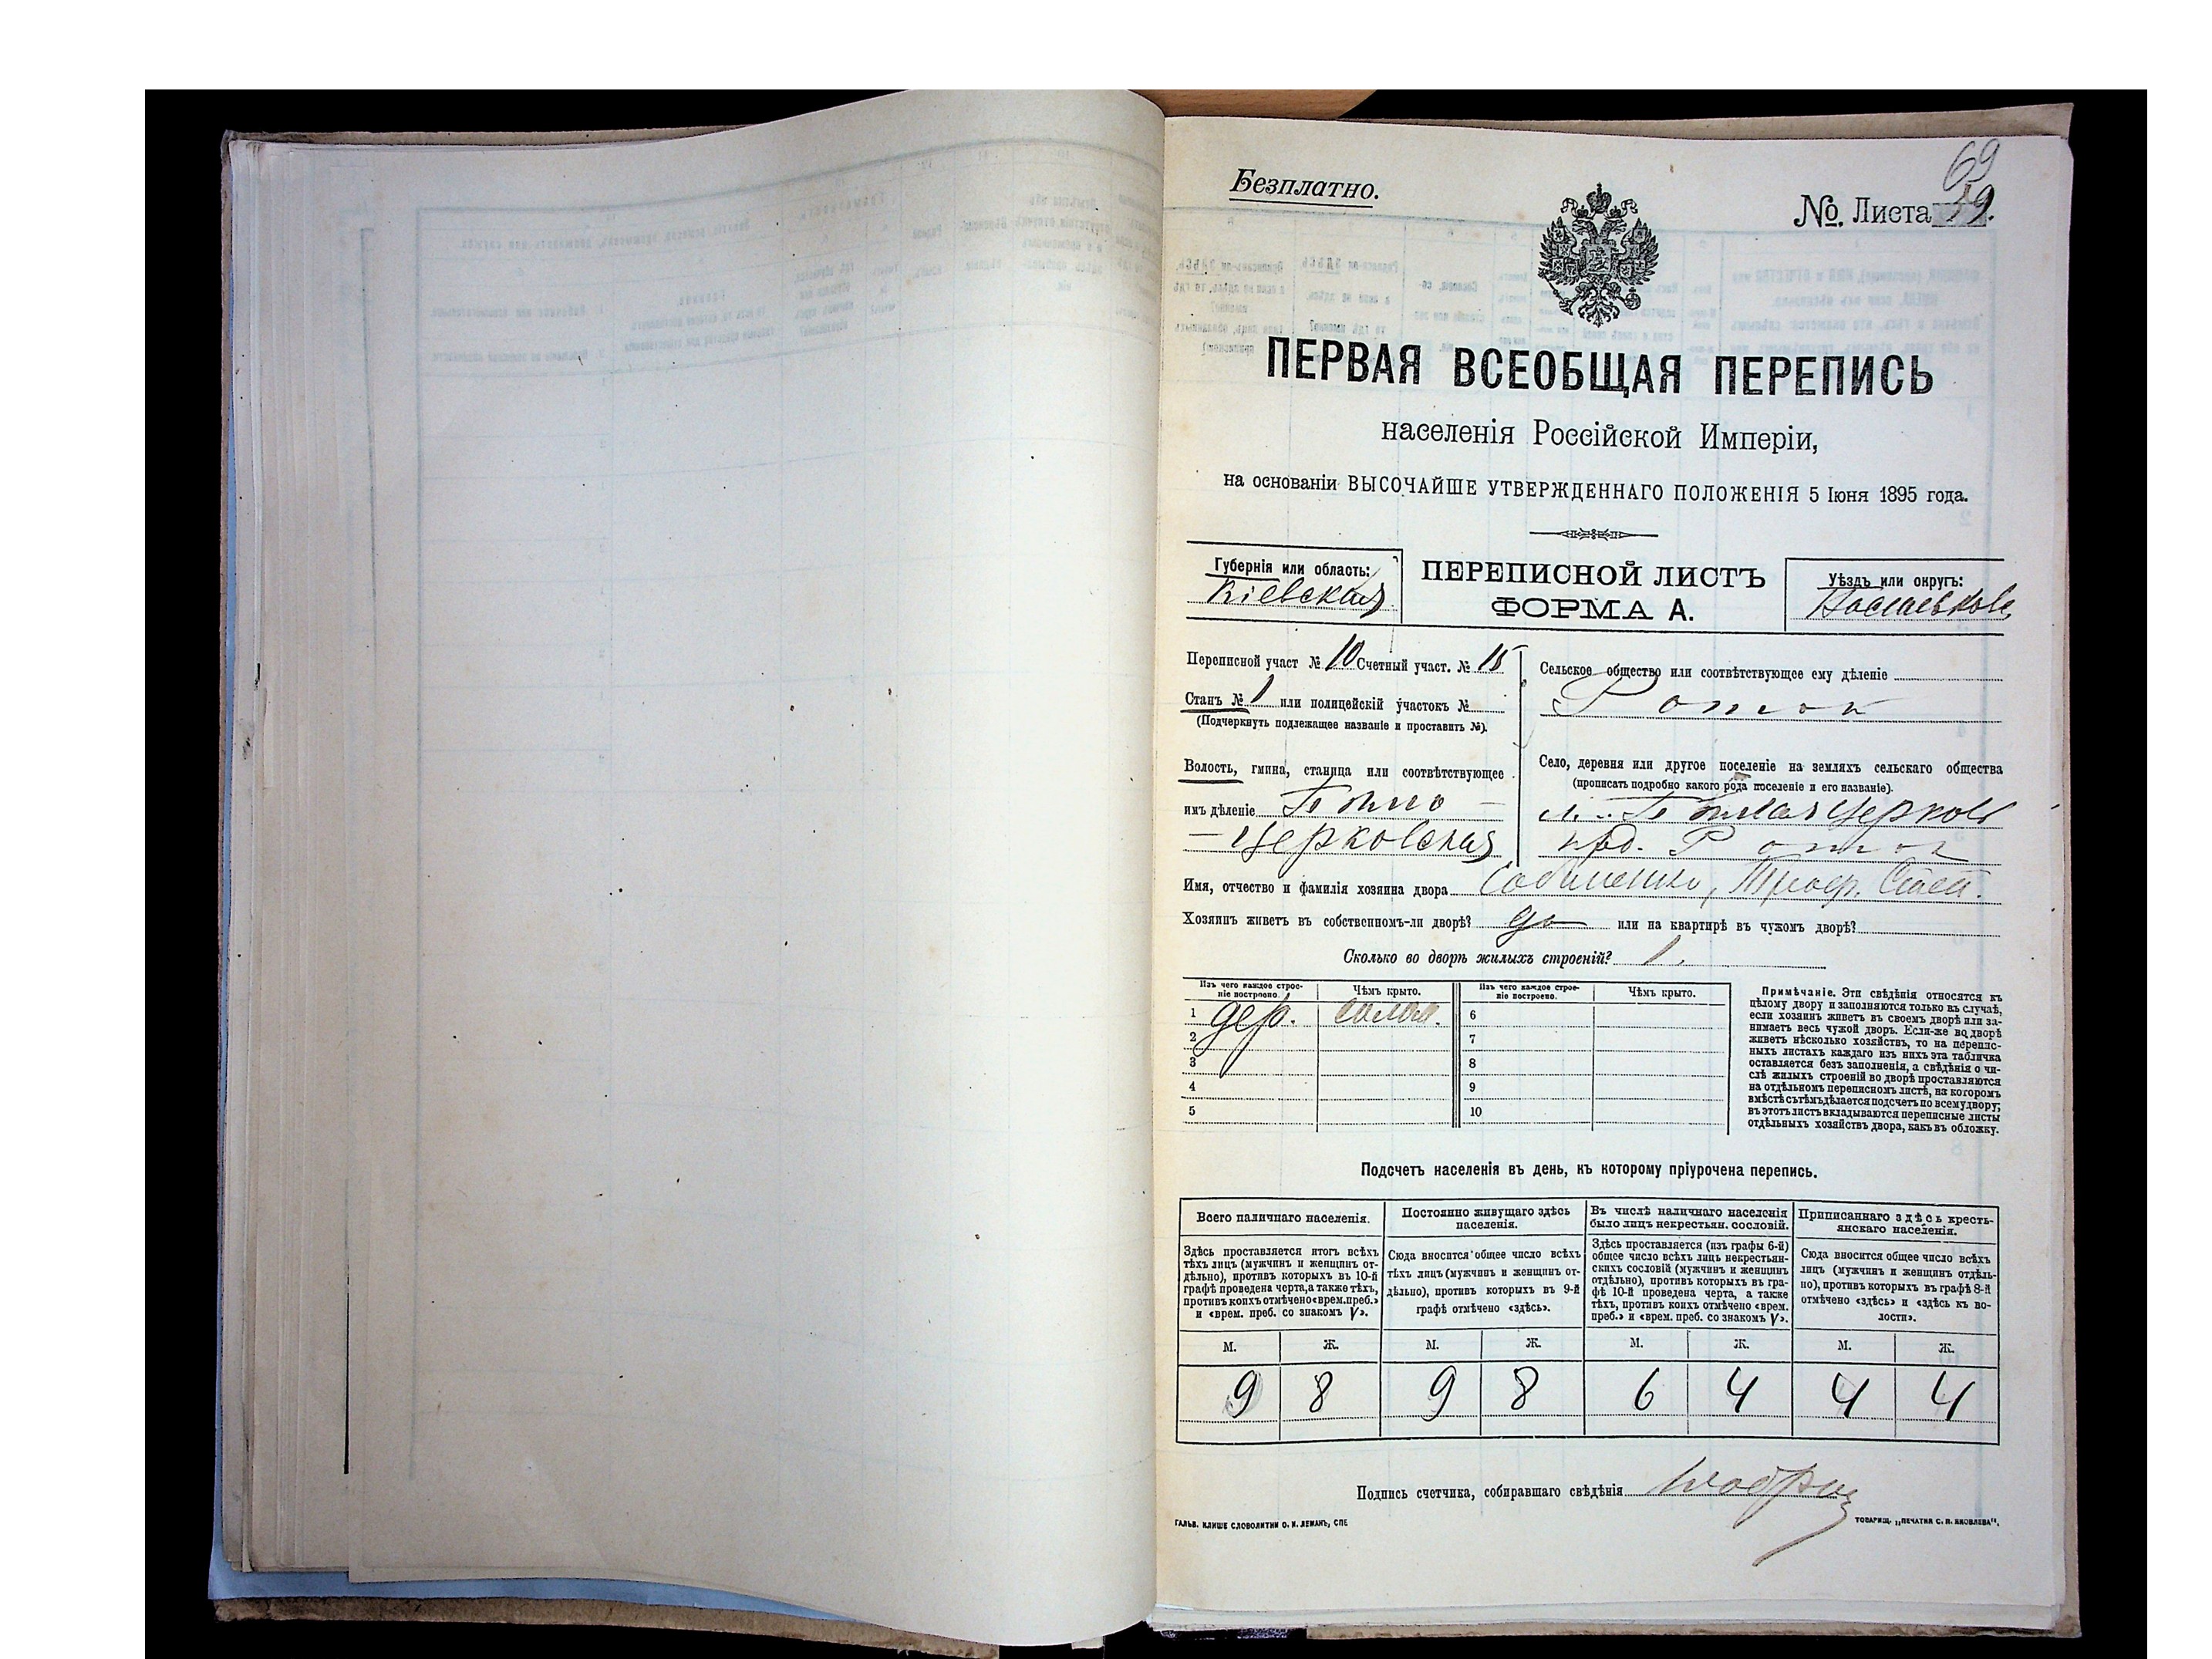 69
Безплатно.
№ Листа 59.
ПЕРВАЯ ВСЕОБЩАЯ ПЕРЕПИСЬ
населенія Россійской Имперіи,
на основаніи ВЫСОЧАЙШЕ УТВЕРЖДЕННАГО ПОЛОЖЕНІЯ 5 Іюня 1895 года.
Губернія или область:
Кіевская
ПЕРЕПИСНОЙ ЛИСТЪ
ФОРМА А.
Уѣздъ или округъ:
Переписной участ № 10 Счетный участ. № 15
Станъ № 1 или полицейскій участокъ №
(Подчеркнуть подлежащее названіе и проставить №).
Волость, гмина, станица или соотвѣтствующее
имъ дѣленіе Бѣло-
-Церковская
Сельское общество или соотвѣтствующее ему дѣленіе
Ротокъ
Село, деревня или другое поселеніе на земляхъ сельскаго общества
(прописать подробно какого рода поселеніе и его названіе).
м. Бѣлая Церковь
пред. Ротокъ
Имя, отчество и фамилія хозяина двора
Хозяинъ живетъ въ собственномъ-ли дворѣ? да или на квартирѣ въ чужомъ дворѣ?
Сколько во дворѣ жилыхъ строеній? 1.
Изъ чего каждое строеніе построено.
Чѣмъ крыто.
Изъ чего каждое строеніе построено.
Чѣмъ крыто.
1 дер. солом. 6
2 7
3 8
4 9
5 10
Примѣчаніе. Эти свѣдѣнія относятся къ
цѣлому двору и заполняются только въ случаѣ,
если хозяинъ живетъ въ своемъ дворѣ или за-
нимаетъ весь чужой дворъ. Если-же во дворѣ
живетъ нѣсколько хозяйствъ, то на перепис-
ныхъ листахъ каждаго изъ нихъ эта табличка
оставляется безъ заполненія, а свѣдѣнія о чи-
слѣ жилыхъ строеній во дворѣ проставляются
на отдѣльномъ переписномъ листѣ, на которомъ
вмѣстѣ съ тѣмъ дѣлается подсчетъ по всему двору;
въ этотъ листъ вкладываются переписные листы
отдѣльныхъ хозяйствъ двора, какъ въ обложку.
Подсчетъ населенія въ день, къ которому пріурочена перепись.
Всего наличнаго населенія.
Здѣсь проставляется итогъ всѣхъ
тѣхъ лицъ (мужчинъ и женщинъ от-
дѣльно), противъ которыхъ въ 10-й
графѣ проведена черта, а также тѣхъ,
противъ коихъ отмѣчено «врем. преб.»
и «врем. преб. со знакомъ V».
Постоянно живущаго здѣсь
населенія.
Сюда вносится общее число всѣхъ
тѣхъ лицъ (мужчинъ и женщинъ от-
дѣльно), противъ которыхъ въ 9-й
графѣ отмѣчено «здѣсь».
Въ числѣ наличнаго населенія
было лицъ некрестьян. сословій.
Здѣсь проставляется (изъ графы 6-й)
общее число всѣхъ лицъ некрестьян-
скихъ сословій (мужчинъ и женщинъ
отдѣльно), противъ которыхъ въ гра-
фѣ 10-й проведена черта, а также
тѣхъ, противъ коихъ отмѣчено «врем.
преб.» и «врем. преб. со знакомъ V».
Приписаннаго здѣсь кресть-
янскаго населенія.
Сюда вносится общее число всѣхъ
лицъ (мужчинъ и женщинъ отдѣль-
но), противъ которыхъ въ графѣ 8-й
отмѣчено «здѣсь» и «здѣсь къ во-
лости».
М. Ж. М. Ж. М. Ж. М. Ж.
9 8 9 8 6 4 4 4
Подпись счетчика, собиравшаго свѣдѣнія
ГАЛЬВ. КЛИШЕ СЛОВОЛИТНИ О. И. ЛЕМАНЪ, СПБ
ТОВАРИЩ. „ПЕЧАТНЯ С. П. ЯКОВЛЕВА“.